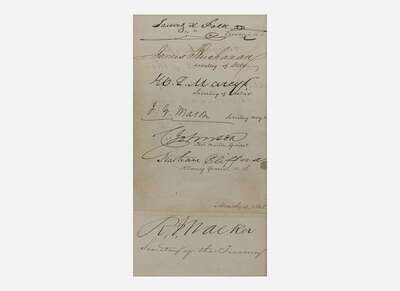 James K Polk
James Buchanan
Secretary of State
W. L. Marcy
Secretary of War
J. Y. Mason
Secretary Navy
C Johnson
Post Master General
Nathan Clifford
Attorney General
March
R. J. Walker
Secretary of the Treasury